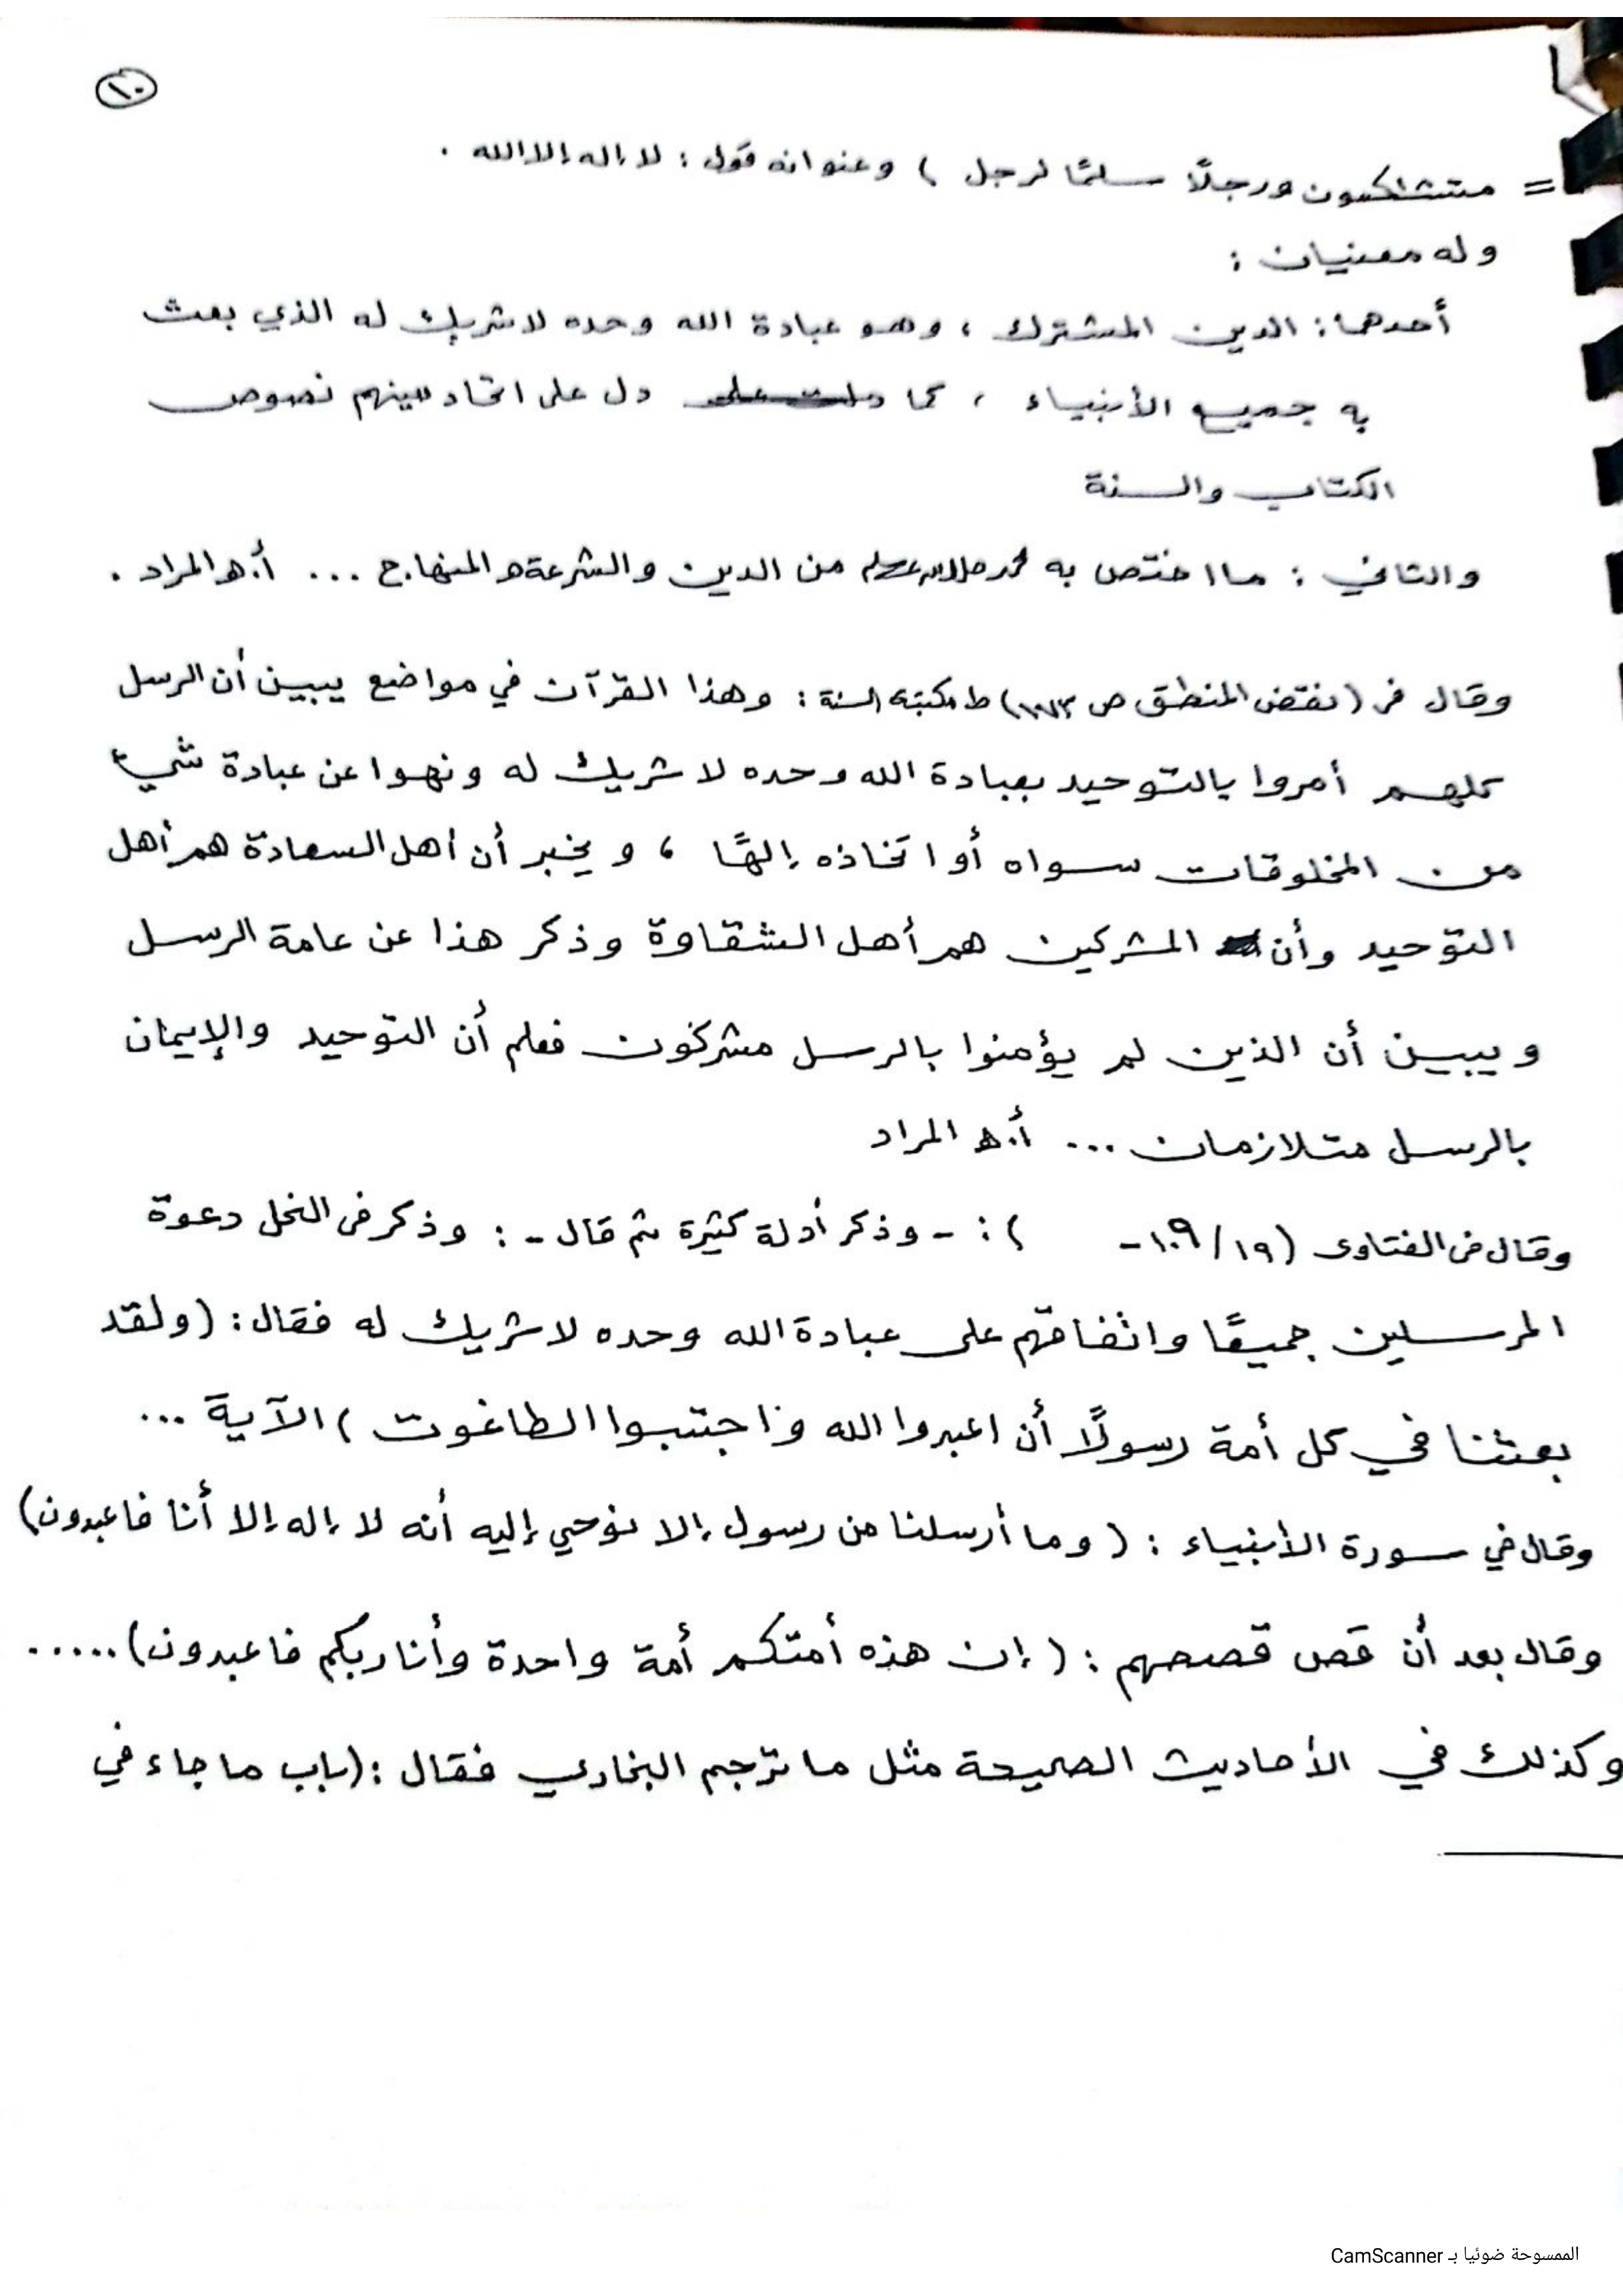 ١٠
= متشاكسون ورجلًا سلمًا لرجل ) وعنوانه قول : لا إله إلا الله .
وله معنيان :
أحدهما : الدين المشترك ، وهو عبادة الله وحده لا شريك له الذي بعث
به جميع الأنبياء ، كما دل على اتحاد دينهم نصوص
الكتاب والسنة
والثاني : ما اختص به محمد صلى الله عليه وسلم من الدين والشرعة والمنهاج ... أ.هـ المراد .
وقال في ( نقض المنطق ص ) ط مكتبة السنة : وهذا القرآن في مواضع يبين أن الرسل
كلهم أمروا بالتوحيد بعبادة الله وحده لا شريك له ونهوا عن عبادة شيء
من المخلوقات سواه أو اتخاذه إلهًا ، ويخبر أن أهل السعادة هم أهل
التوحيد وأن المشركين هم أهل الشقاوة وذكر هذا عن عامة الرسل
ويبين أن الذين لم يؤمنوا بالرسل مشركون فعلم أن التوحيد والإيمان
بالرسل متلازمان ... أ.هـ المراد
وقال في الفتاوى ( ١٩/ ١٠٩ - ) : - وذكر أدلة كثيرة ثم قال - : وذكر في النحل دعوة
المرسلين جميعًا واتفاقهم على عبادة الله وحده لا شريك له فقال : ( ولقد
بعثنا في كل أمة رسولًا أن اعبدوا الله واجتنبوا الطاغوت ) الآية ...
وقال في سورة الأنبياء : ( وما أرسلنا من رسول إلا نوحي إليه أنه لا إله إلا أنا فاعبدون )
وقال بعد أن قص قصصهم : ( إن هذه أمتكم أمة واحدة وأنا ربكم فاعبدون ) .....
وكذلك في الأحاديث الصحيحة مثل ما ترجم البخاري فقال : ( باب ما جاء في
الممسوحة ضوئيا بـ CamScanner